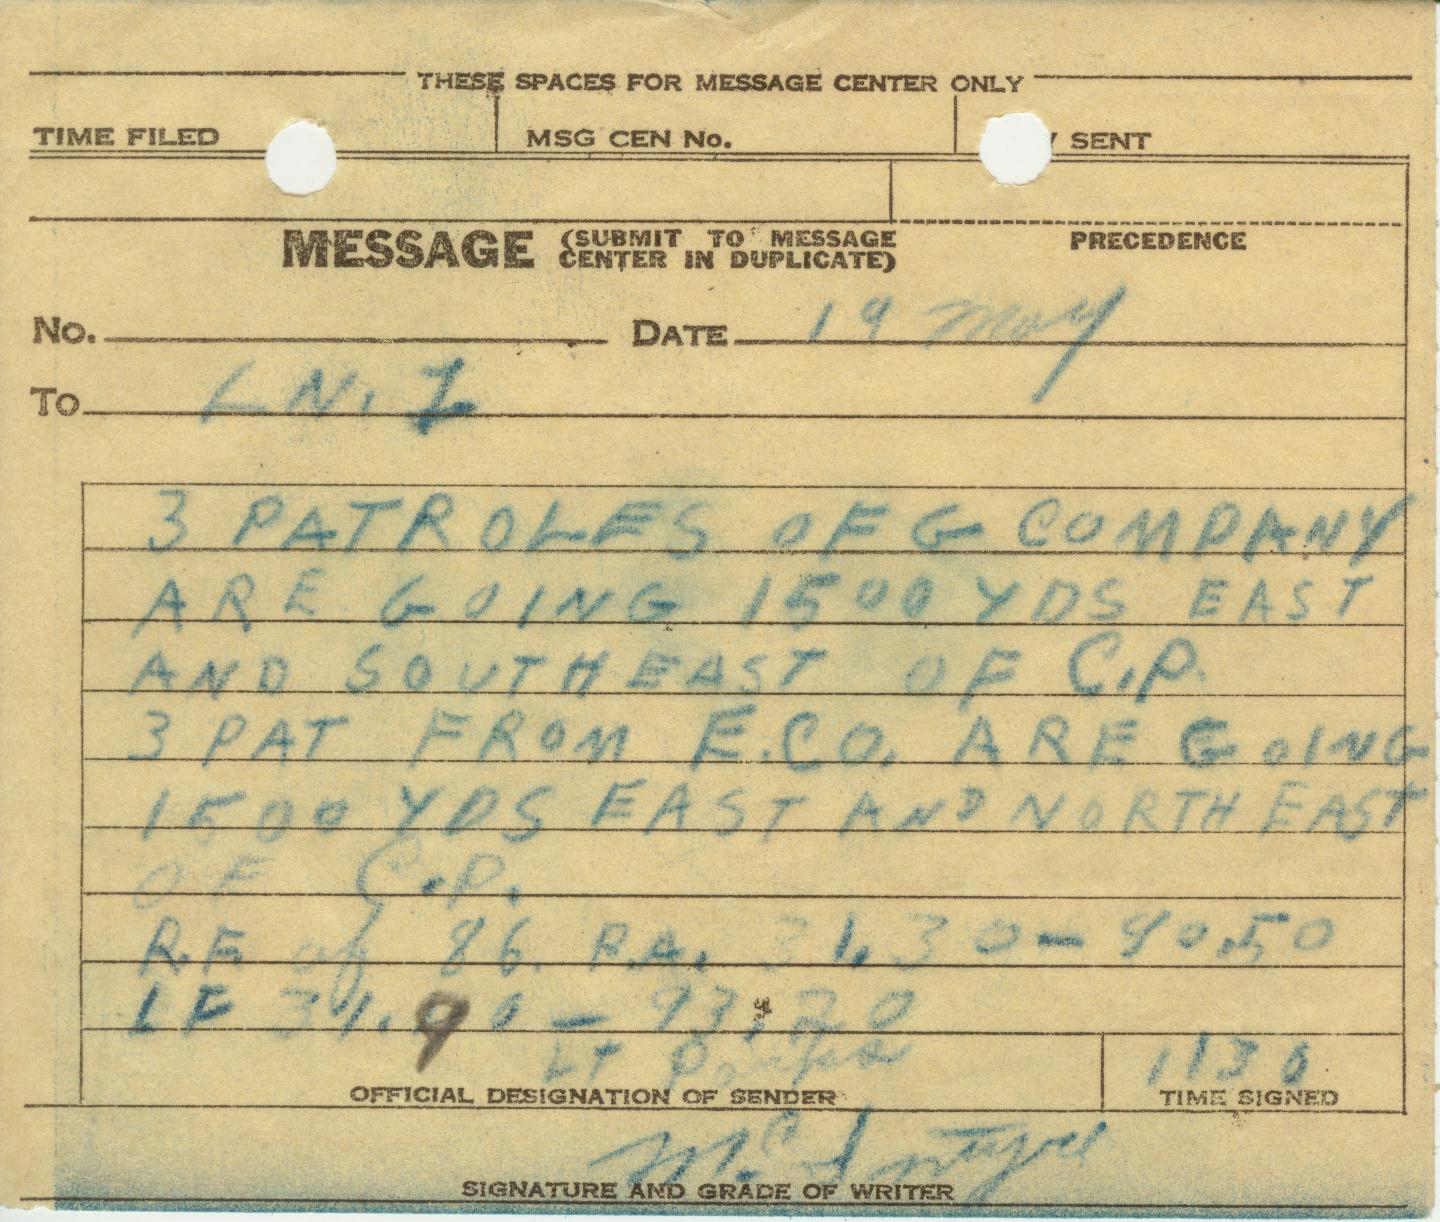 THESE SPACES FOR MESSAGE CENTER ONLY
TIME FILED MSG CEN No. SENT
MESSAGE (SUBMIT TO MESSAGE CENTER IN DUPLICATE) PRECEDENCE
No. DATE 19 May
To LN. 2
3 PATROLES OF G COMPANY
ARE GOING 1500 YDS EAST
AND SOUTHEAST OF C.P.
3 PAT FROM E.CO. ARE GOING
1500 YDS EAST AND NORTH EAST
OF C.P.
R.F of 86. P.A. 31.30 - 90.50
LF 31.90 - 93.20
LT 1130
OFFICIAL DESIGNATION OF SENDER TIME SIGNED
McIntyre
SIGNATURE AND GRADE OF WRITER